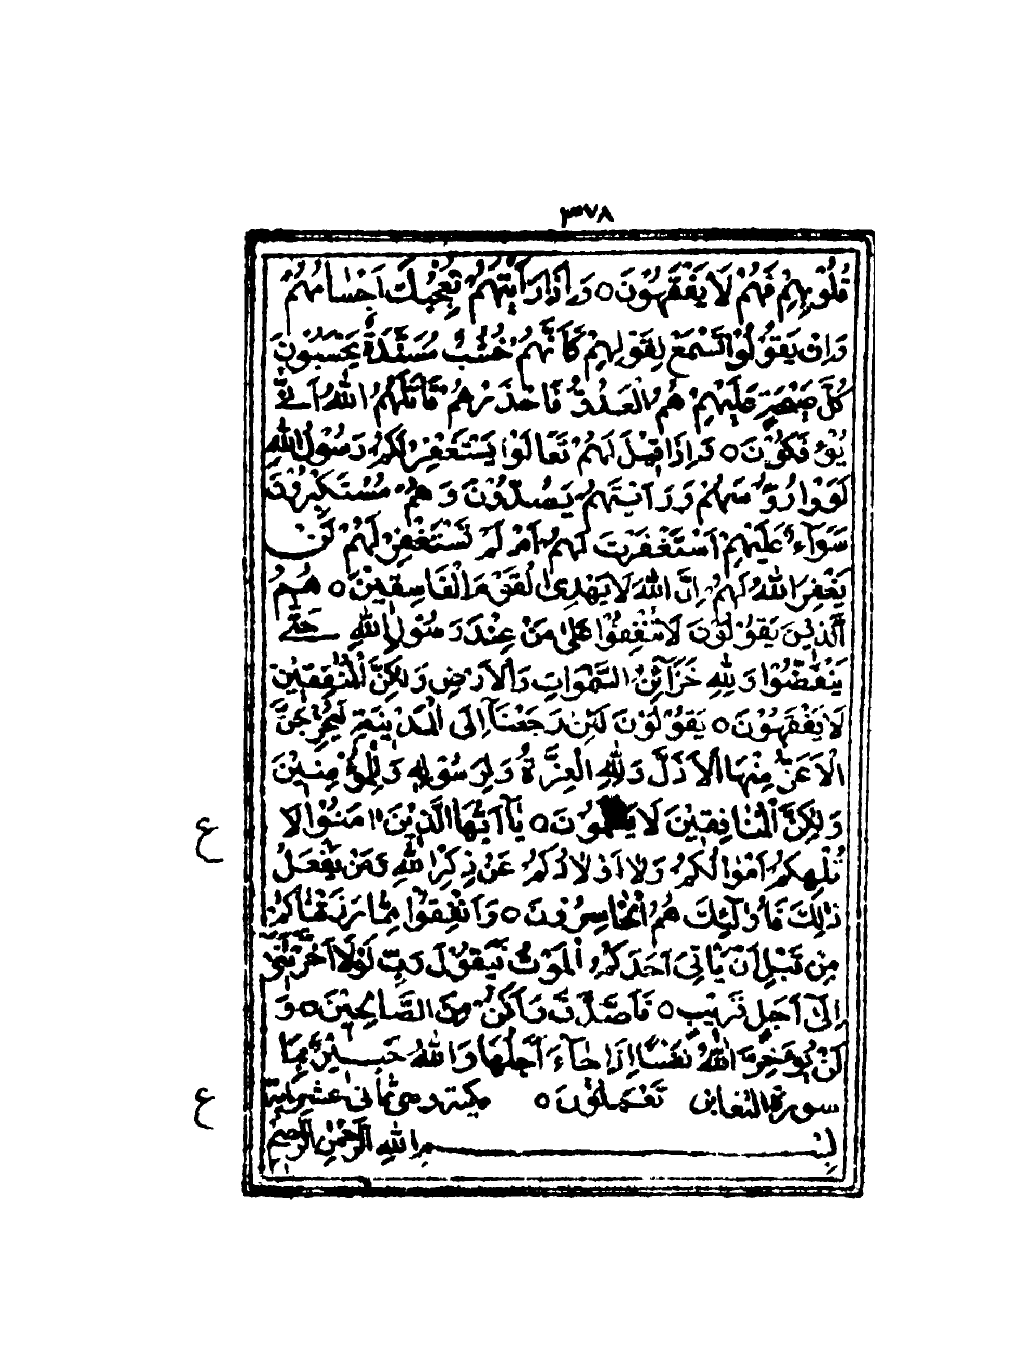 ٣٧٨
قُلُوْبِهِمْ فَهُمْ لَا يَفْقَهُوْنَ ○ وَاِذَا رَاَيْتَهُمْ تُعْجِبُكَ اَجْسَامُهُمْ
وَاِنْ يَقُوْلُوْا تَسْمَعْ لِقَوْلِهِمْ كَاَنَّهُمْ خُشُبٌ مُسَنَّدَةٌ يَحْسَبُوْنَ
كُلَّ صَيْحَةٍ عَلَيْهِمْ هُمُ الْعَدُوُّ فَاحْذَرْهُمْ قَاتَلَهُمُ اللهُ اَنّٰى
يُؤْفَكُوْنَ ○ وَاِذَا قِيْلَ لَهُمْ تَعَالَوْا يَسْتَغْفِرْ لَكُمْ رَسُوْلُ اللهِ
لَوَّوْا رُؤُسَهُمْ وَرَاَيْتَهُمْ يَصُدُّوْنَ وَهُمْ مُسْتَكْبِرُوْنَ
سَوَآءٌ عَلَيْهِمْ اَسْتَغْفَرْتَ لَهُمْ اَمْ لَمْ تَسْتَغْفِرْ لَهُمْ لَنْ
يَغْفِرَ اللهُ لَهُمْ اِنَّ اللهَ لَا يَهْدِى الْقَوْمَ الْفَاسِقِيْنَ ○ هُمُ
الَّذِيْنَ يَقُوْلُوْنَ لَا تُنْفِقُوْا عَلٰى مَنْ عِنْدَ رَسُوْلِ اللهِ حَتّٰى
يَنْفَضُّوْا وَلِلّٰهِ خَزَآئِنُ السَّمٰوَاتِ وَالْاَرْضِ وَلٰكِنَّ الْمُنٰفِقِيْنَ
لَا يَفْقَهُوْنَ ○ يَقُوْلُوْنَ لَئِنْ رَجَعْنَآ اِلَى الْمَدِيْنَةِ لَيُخْرِجَنَّ
الْاَعَزُّ مِنْهَا الْاَذَلَّ وَلِلّٰهِ الْعِزَّةُ وَلِرَسُوْلِهٖ وَلِلْمُؤْمِنِيْنَ
وَلٰكِنَّ الْمُنَافِقِيْنَ لَا يَعْلَمُوْنَ ○ يَآ اَيُّهَا الَّذِيْنَ اٰمَنُوْا لَا
ع
تُلْهِكُمْ اَمْوَالُكُمْ وَلَا اَوْلَادُكُمْ عَنْ ذِكْرِ اللهِ وَمَنْ يَفْعَلْ
ذٰلِكَ فَاُولٰٓئِكَ هُمُ الْخَاسِرُوْنَ ○ وَاَنْفِقُوْا مِمَّا رَزَقْنَاكُمْ
مِنْ قَبْلِ اَنْ يَّاْتِىَ اَحَدَكُمُ الْمَوْتُ فَيَقُوْلَ رَبِّ لَوْلَآ اَخَّرْتَنِىْ
اِلٰى اَجَلٍ قَرِيْبٍ ○ فَاَصَّدَّقَ وَاَكُنْ مِنَ الصَّالِحِيْنَ ○ وَ
لَنْ يُّؤَخِّرَ اللهُ نَفْسًا اِذَا جَآءَ اَجَلُهَا وَاللهُ خَبِيْرٌ بِمَا
تَعْمَلُوْنَ ○ سورة التغابن مكية وهى ثمانى عشر اية
ع
بِسْمِ اللهِ الرَّحْمٰنِ الرَّحِيْمِ